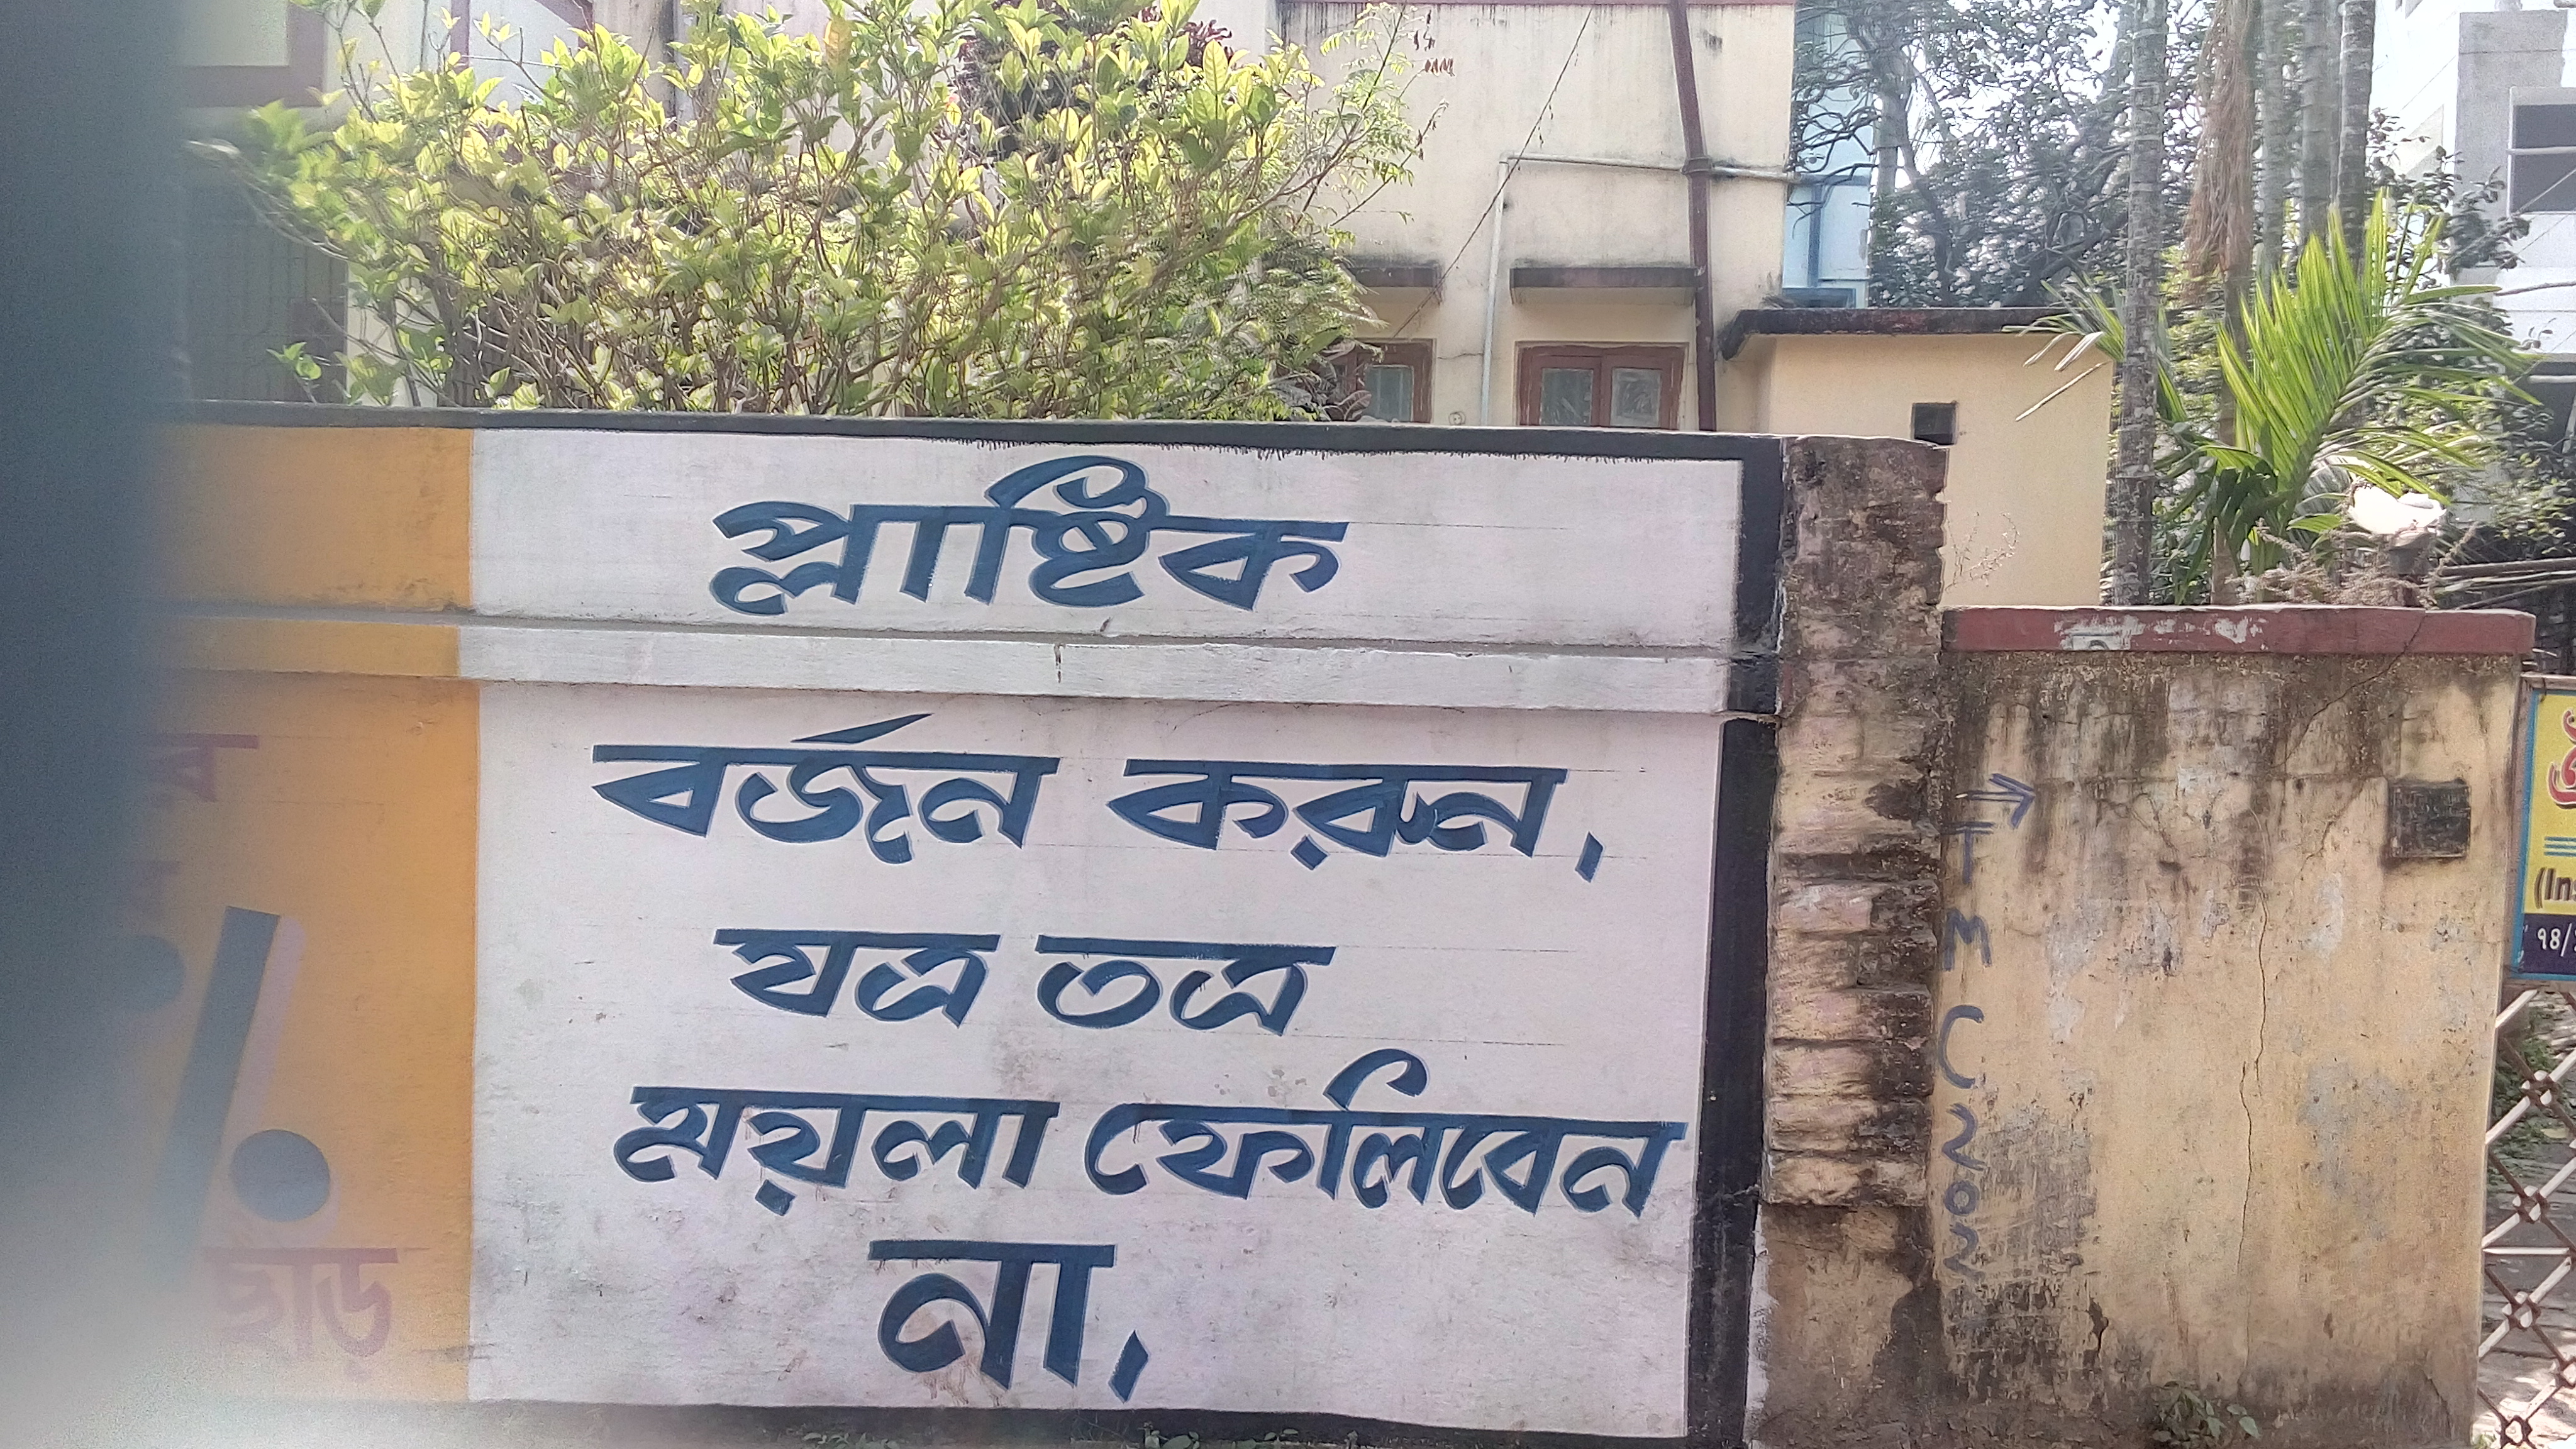 প্লাষ্টিক
বর্জন করুন,
যত্র তত্র
ময়লা ফেলিবেন
না,
ছাড়
→
T
M
C
2
0
2
(In
98/